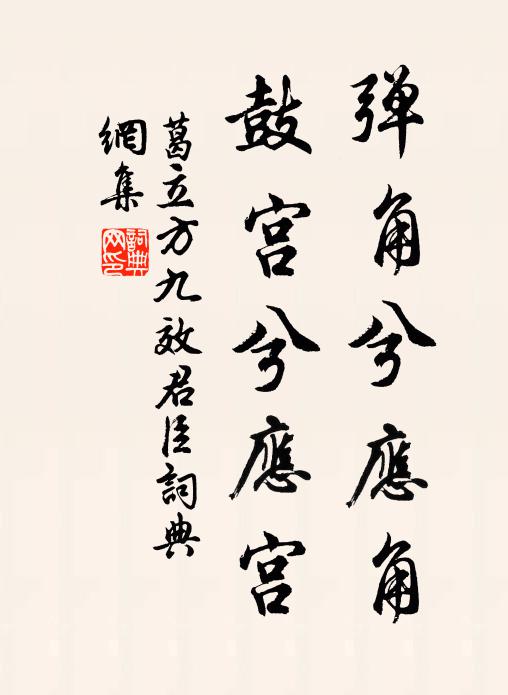 弹角兮應角
鼓宫兮應宫
葛立方九效君臣詞典
網集
詞典网印